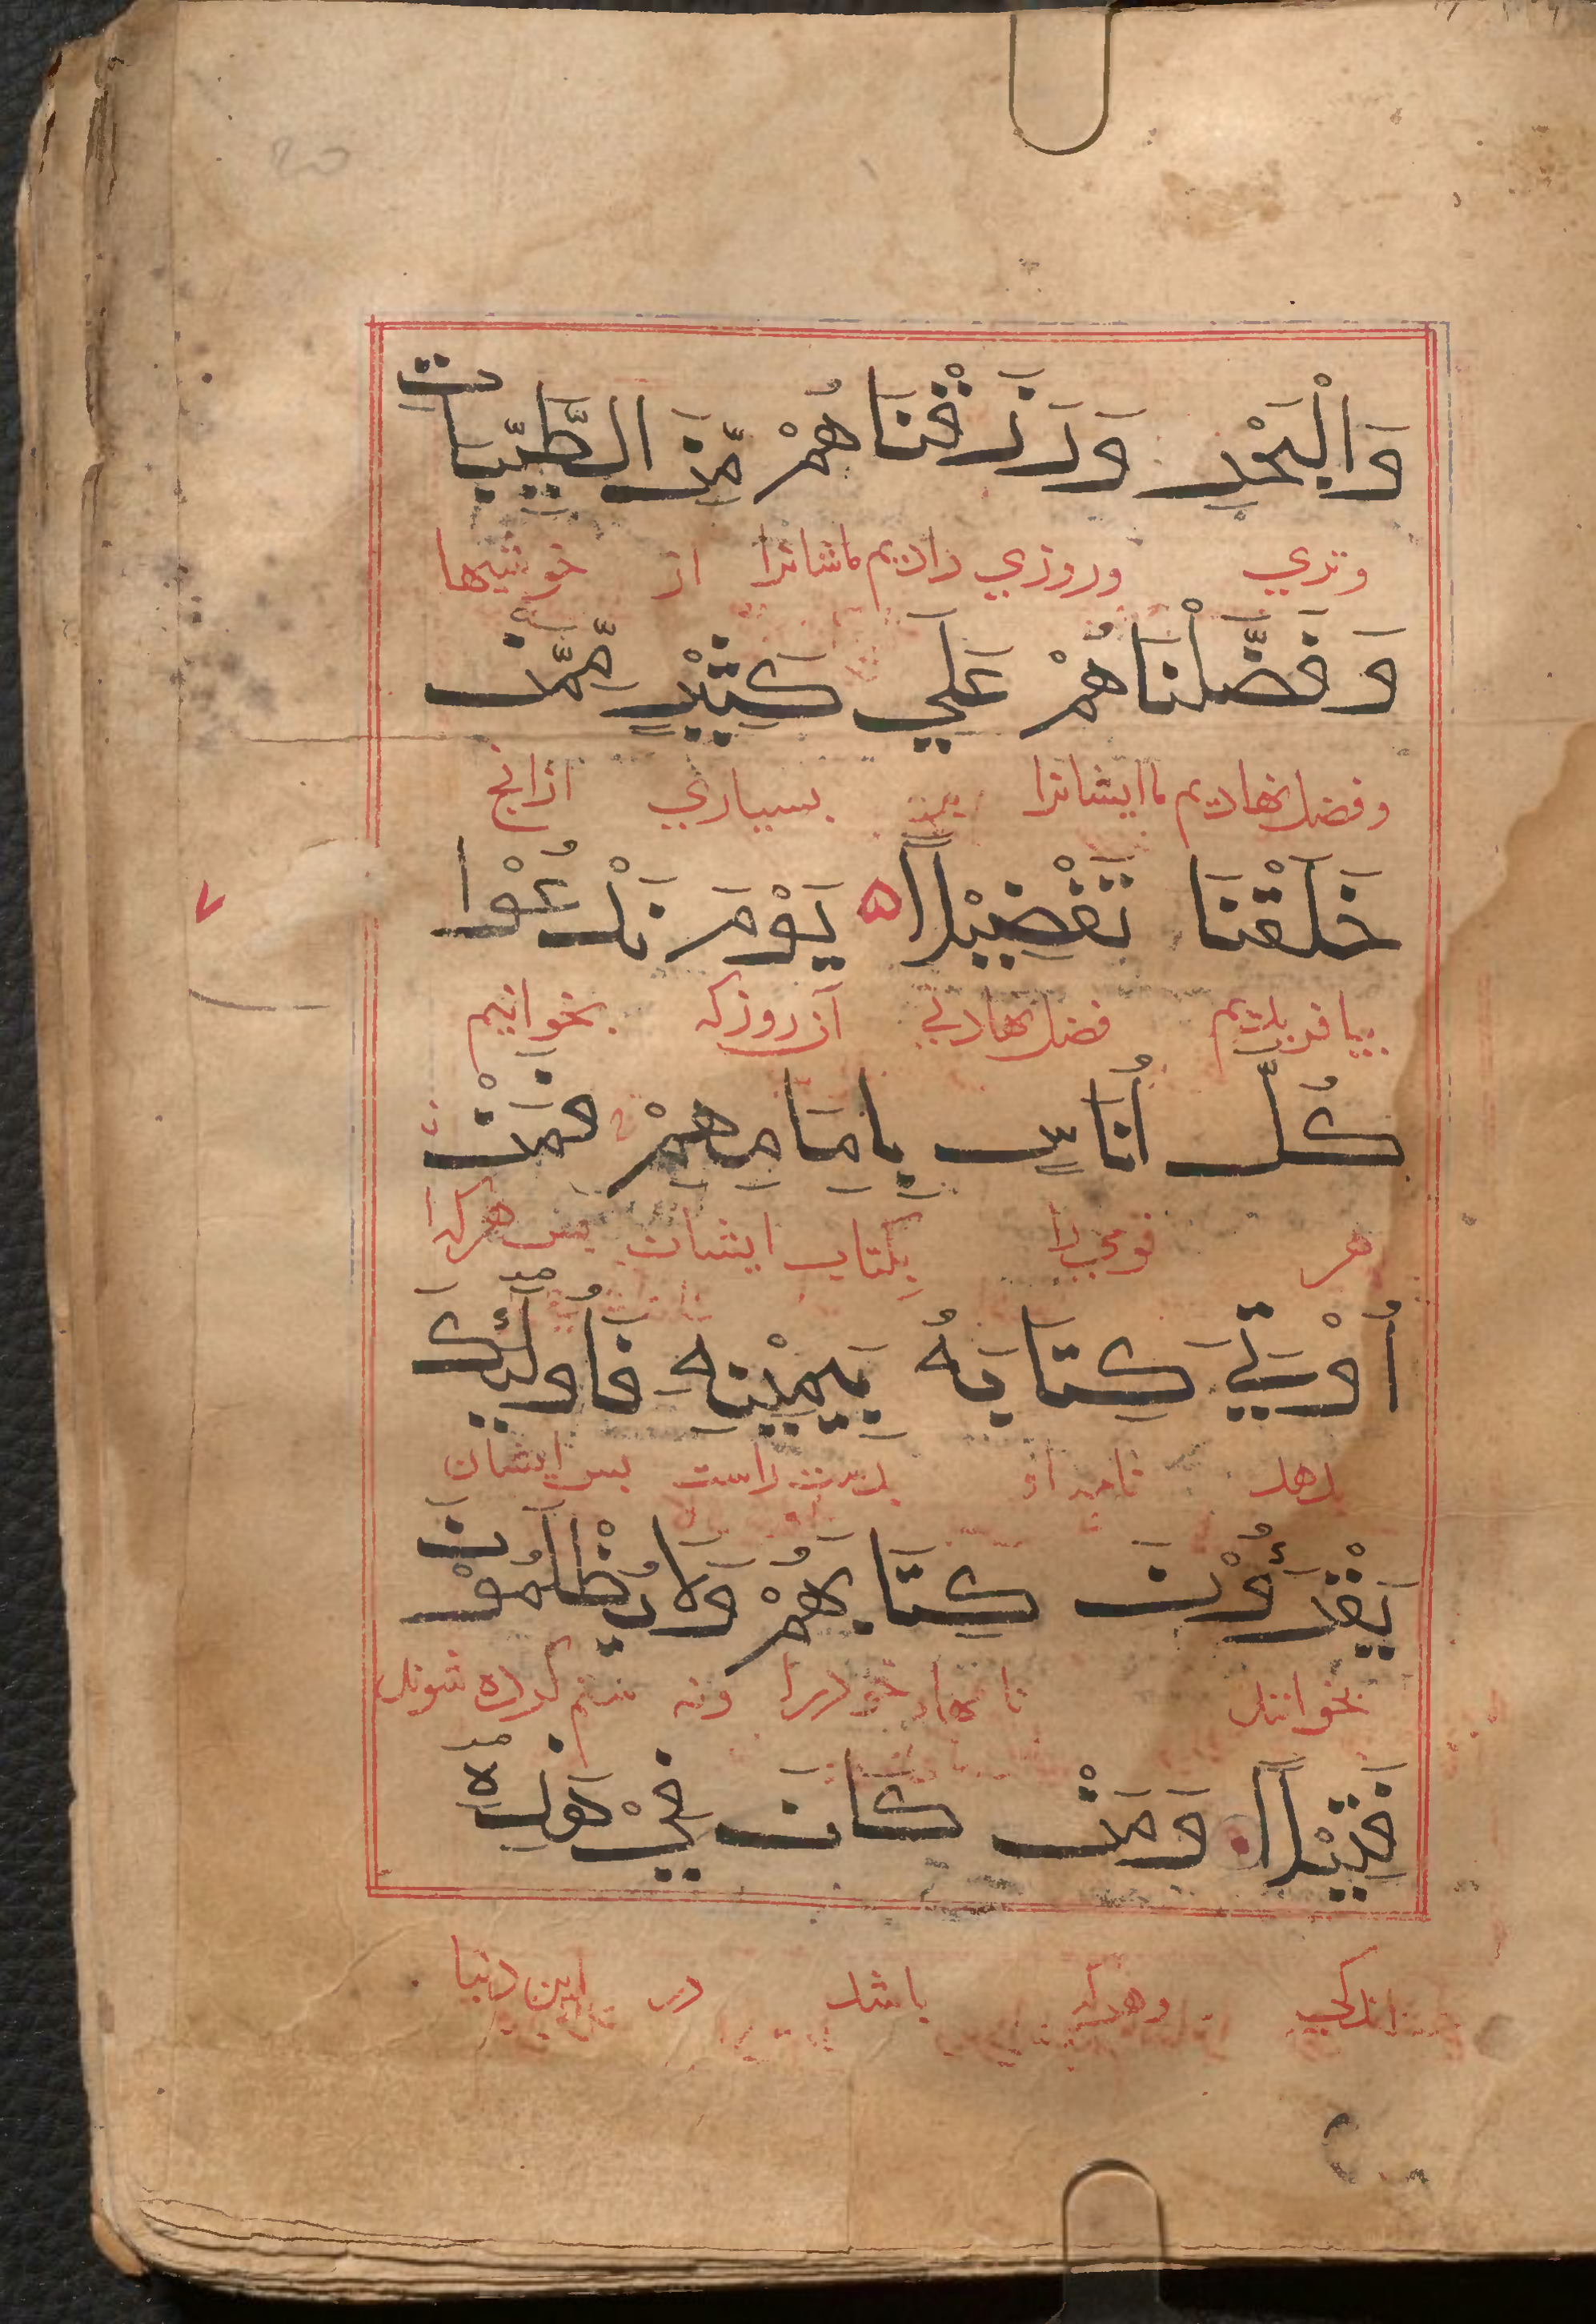 وَالْبَحْرِ وَرَزَقْنَاهُمْ مِّنَ الطَّيِّبَاتِ
وتري وروزي داديم ماشانرا از خوشيها
وَفَضَّلْنَاهُمْ عَلَي كَثِيْرٍ مِّمَّنْ
وفضل نهاديم ما ايشانرا بر بسياري ازانج
خَلَقْنَا تَفْضِيْلاً ه يَوْمَ نَدْعُوْا
بيافريديم فضل نهادني آن روز كه بخوانيم
كُلَّ أُنَاسٍ بِاِمَامِهِمْ فَمَنْ
هر قومي را بكتاب ايشان بس هركرا
أُوْتِيَ كِتَابَهُ بِيَمِيْنِهِ فَأُولَئِكَ
بدهد نامه او بدست راست بس ايشان
يَقْرَءُوْنَ كِتَابَهُمْ وَلَا يُظْلَمُوْنَ
بخوانند نامهاء خودرا ونه ستم كرده شوند
فَتِيْلاً وَمَنْ كَانَ فِيْ هَذِهِ
اندكي وهركه باشد در اين دنيا